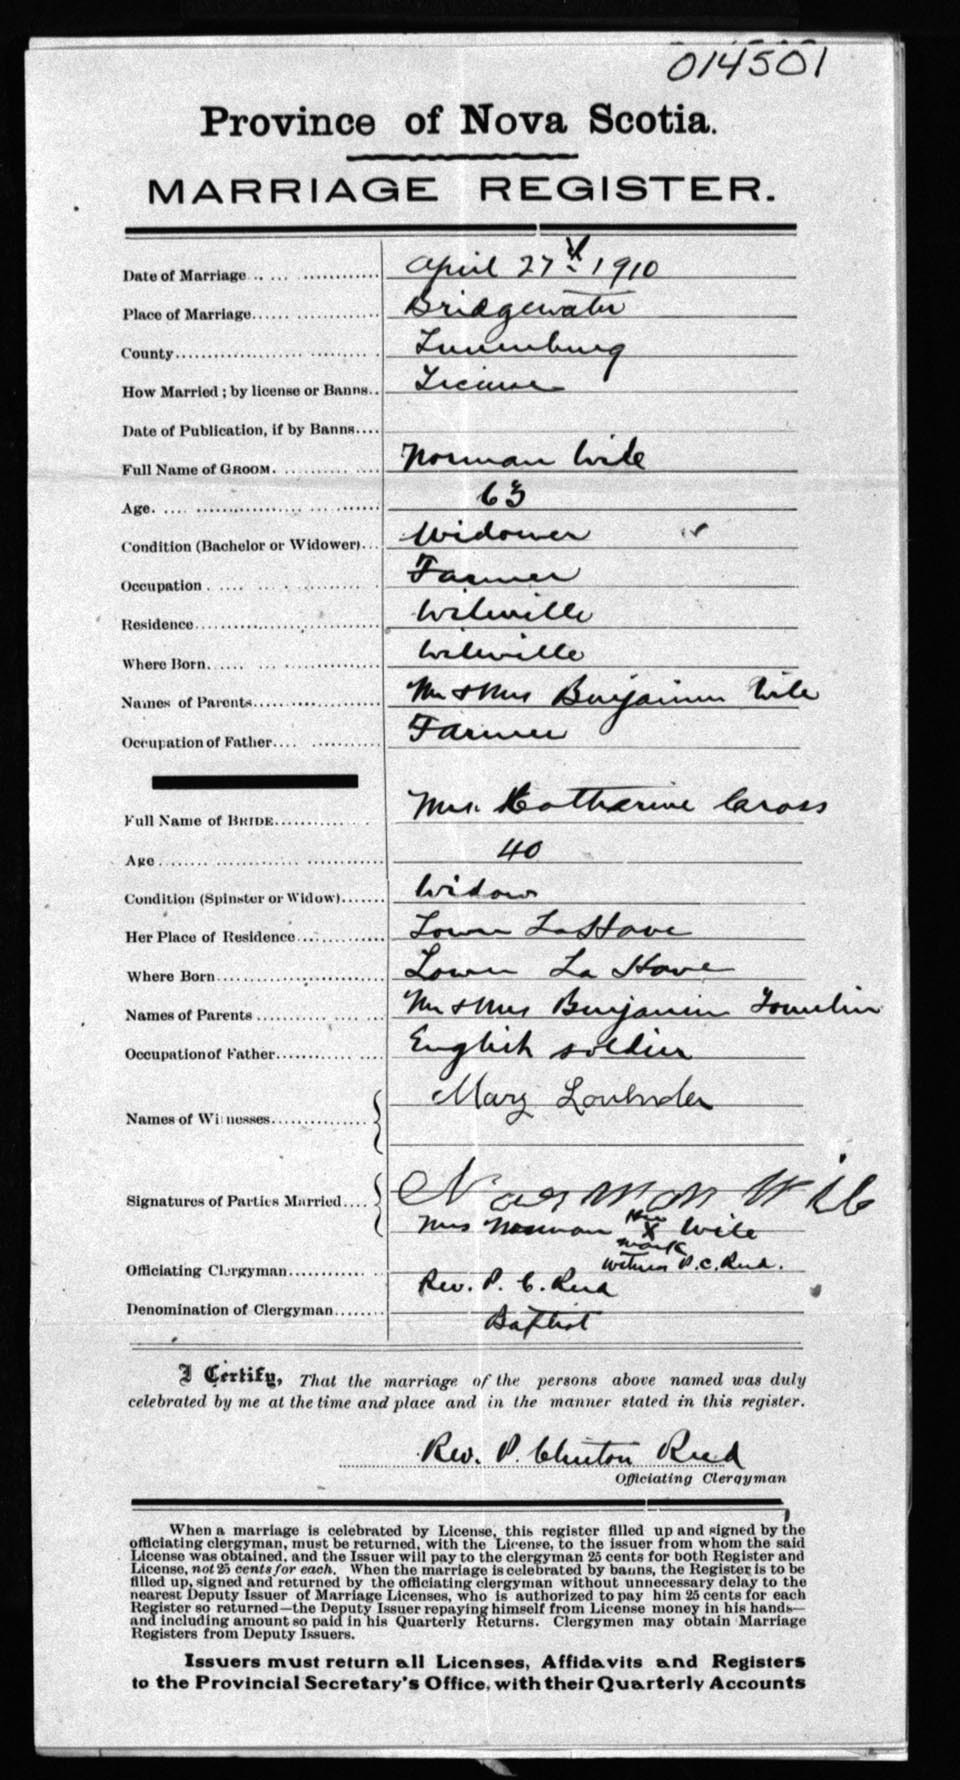 014501
Province of Nova Scotia.
MARRIAGE REGISTER.
Date of Marriage ... ... ............ April 27th 1910
Place of Marriage...... ............. Bridgewater
County.................... .......... Lunenburg
How Married ; by license or Banns.. License
Date of Publication, if by Banns....
Full Name of GROOM. .......... ..... Norman Wile
Age. .... ................ ... ...... 63
Condition (Bachelor or Widower)... Widower
Occupation . .... ... . ............ Farmer
Residence........................... Wileville
Where Born..... ... ............... Wileville
Names of Parents.................... Mr & Mrs Benjamin Wile
Occupation of Father.... ........... Farmer
Full Name of BRIDE............ . Mrs. Catharine Cross
Age....... ............ ............ 40
Condition (Spinster or Widow)....... Widow
Her Place of Residence.............. Lower LaHave
Where Born.......................... Lower La Have
Names of Parents .......... ........ Mr & Mrs Benjamin Tomelin
Occupation of Father............ .... English soldier
Names of Witnesses............... Mary
Signatures of Parties Married.... Norman Wile
Mrs Norman her X mark Wile
witness P.C. Reed.
Officiating Clergyman............ .. Rev. P. C. Reed
Denomination of Clergyman........ Baptist
I Certify, That the marriage of the persons above named was duly
celebrated by me at the time and place and in the manner stated in this register.
Rev. P. Clinton Reed
Officiating Clergyman
When a marriage is celebrated by License, this register filled up and signed by the
officiating clergyman, must be returned, with the License, to the issuer from whom the said
License was obtained, and the Issuer will pay to the clergyman 25 cents for both Register and
License, not 25 cents for each. When the marriage is celebrated by banns, the Register is to be
filled up, signed and returned by the officiating clergyman without unnecessary delay to the
nearest Deputy Issuer of Marriage Licenses, who is authorized to pay him 25 cents for each
Register so returned—the Deputy Issuer repaying himself from License money in his hands—
and including amount so paid in his Quarterly Returns. Clergymen may obtain Marriage
Registers from Deputy Issuers.
Issuers must return all Licenses, Affidavits and Registers
to the Provincial Secretary's Office, with their Quarterly Accounts